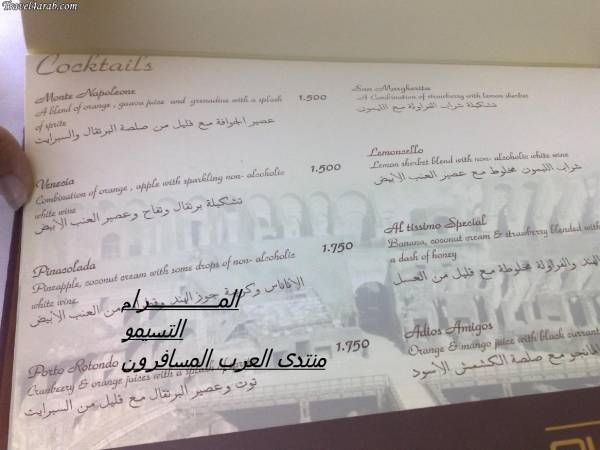 Travel4arab.com
Cocktails
Monte Napoleone
A blend of orange, guava juice and grenadine with a splash
1.500
of sprite
عصير الجوافة مع قليل من صلصة البرتقال والسبرايت
Venezia
Combination of orange, apple with sparkling non-alcoholic
1.500
white wine
تشكيلة برتقال وتفاح وعصير العنب الأبيض
Pinacolada
1.750
Pineapple, coconut cream with some drops of non-alcoholic
white wine
الأناناس وكريمة جوز الهند من العنب الأبيض
Porto Rotondo
1.750
Cranbeery & orange juices with a
توت وعصير البرتقال مع قليل من السبرايت
San Margherita
A Combination of strawberry with lemon sherbet
تشكيلة شراب الفراولة مع الليمون
Lemoncello
Lemon sherbet blend with non-alcoholic white wine
شراب الليمون مخلوط مع عصير العنب الأبيض
Al tissimo Special
Banana, coconut cream & strawberry blended with
a dash of honey
الهند والفراولة مخلوطة مع قليل من العسل
Adios Amigos
Orange & mango juice with black currant
المانجو مع صلصة الكشمش الأسود
التسيمو
منتدى العرب المسافرون